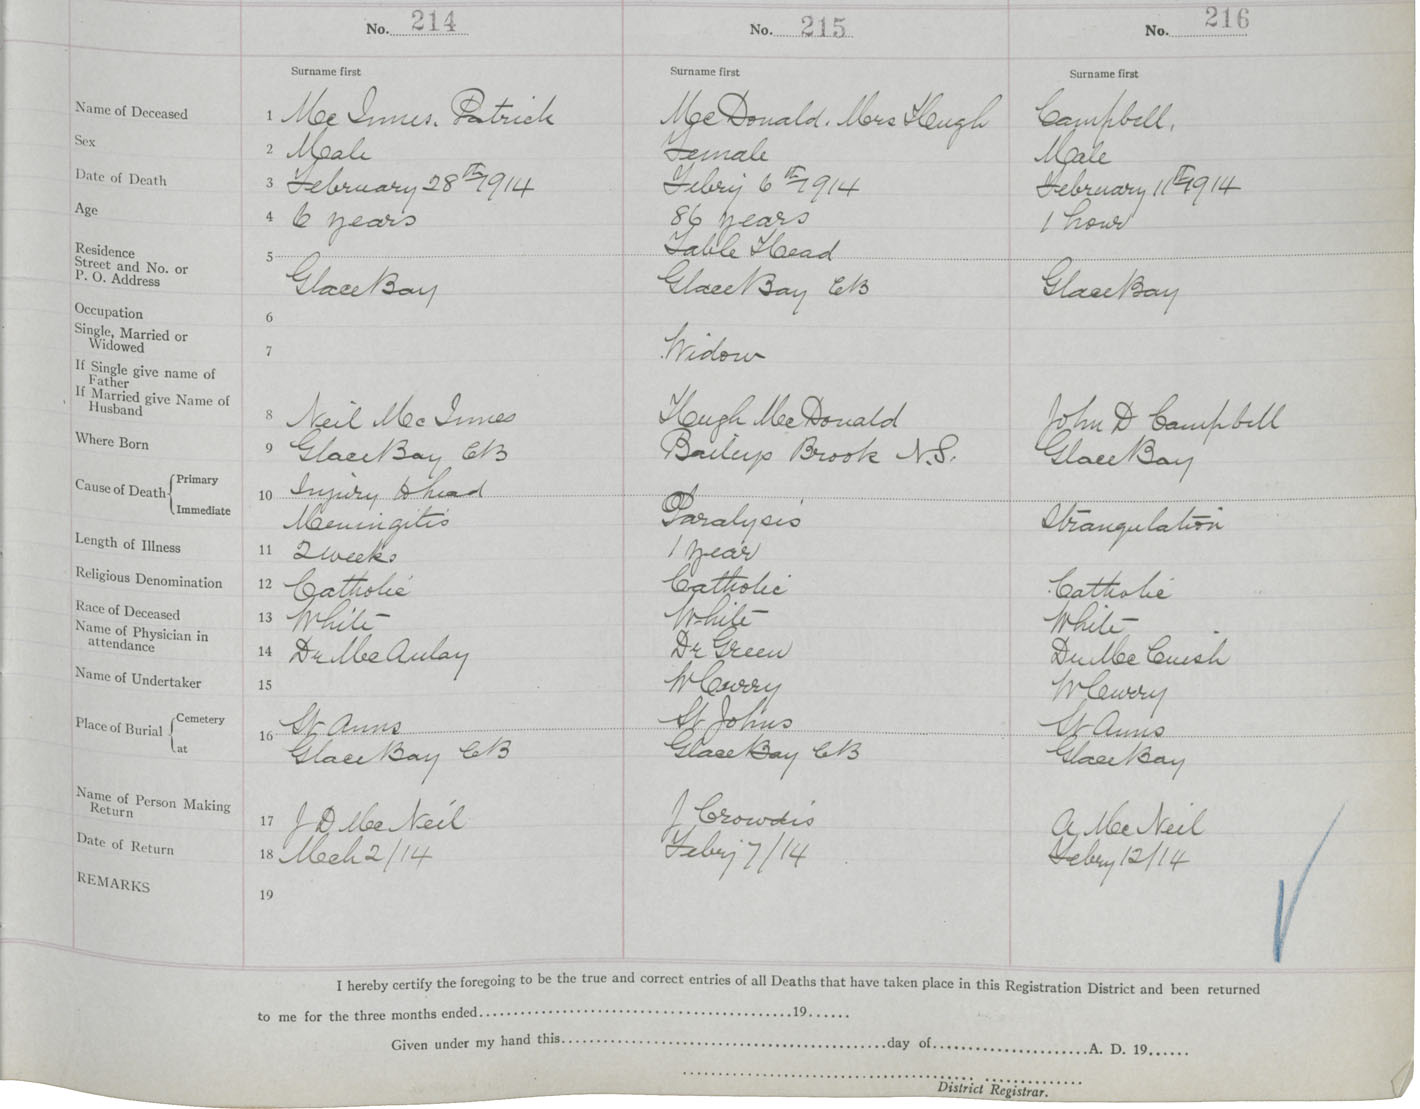 No. 214 No. 215 No. 216
Surname first Surname first Surname first
Name of Deceased 1 Mc Innes, Patrick McDonald. Mrs Hugh Campbell,
Sex 2 Male Female Male
Date of Death 3 February 28th 1914 Febry 6th 1914 February 11th 1914
Age 4 6 years 86 years 1 hour
Residence 5 Table Head
Street and No. or
P. O. Address Glace Bay Glace Bay CB Glace Bay
Occupation 6
Single, Married or
Widowed 7 Widow
If Single give name of
Father
If Married give Name of
Husband 8 Neil Mc Innes Hugh McDonald John D Campbell
Where Born 9 Glace Bay CB Baileys Brook N.S. Glace Bay
Cause of Death Primary 10 Injury to head
Immediate Meningitis Paralysis Strangulation
Length of Illness 11 2 weeks 1 year
Religious Denomination 12 Catholic Catholic Catholic
Race of Deceased 13 White White White
Name of Physician in
attendance 14 Dr McAulay Dr Green Dr McCuish
Name of Undertaker 15 W Curry W Curry
Place of Burial Cemetery 16 St Anns St Johns St Anns
at Glace Bay CB Glace Bay CB Glace Bay
Name of Person Making
Return 17 J D McNeil J Crowdis A McNeil
Date of Return 18 Mch 2/14 Febry 7/14 Febry 12/14
REMARKS 19
I hereby certify the foregoing to be the true and correct entries of all Deaths that have taken place in this Registration District and been returned
to me for the three months ended..........19......
Given under my hand this..........day of..........A. D. 19......
District Registrar.